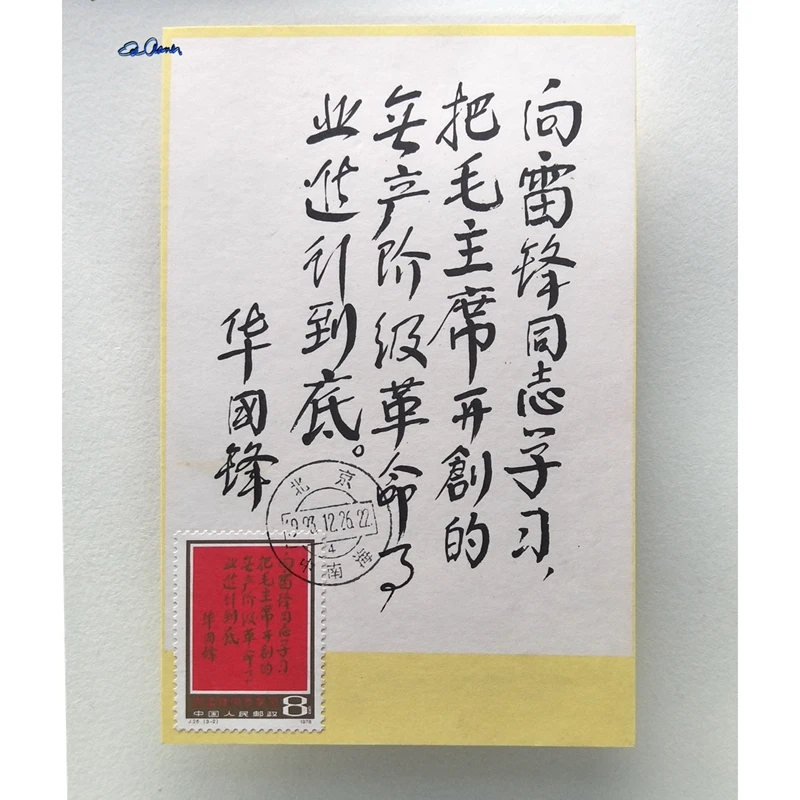 向雷锋同志学习，
把毛主席开創的
無产阶级革命事
业进行到底。
华國锋
北京
1993.12.26.22
中南海
向雷锋同志学习
把毛主席开創的
無产阶级革命事
业进行到底
华國锋
中国人民邮政
8
J.26 (3-2)
1978